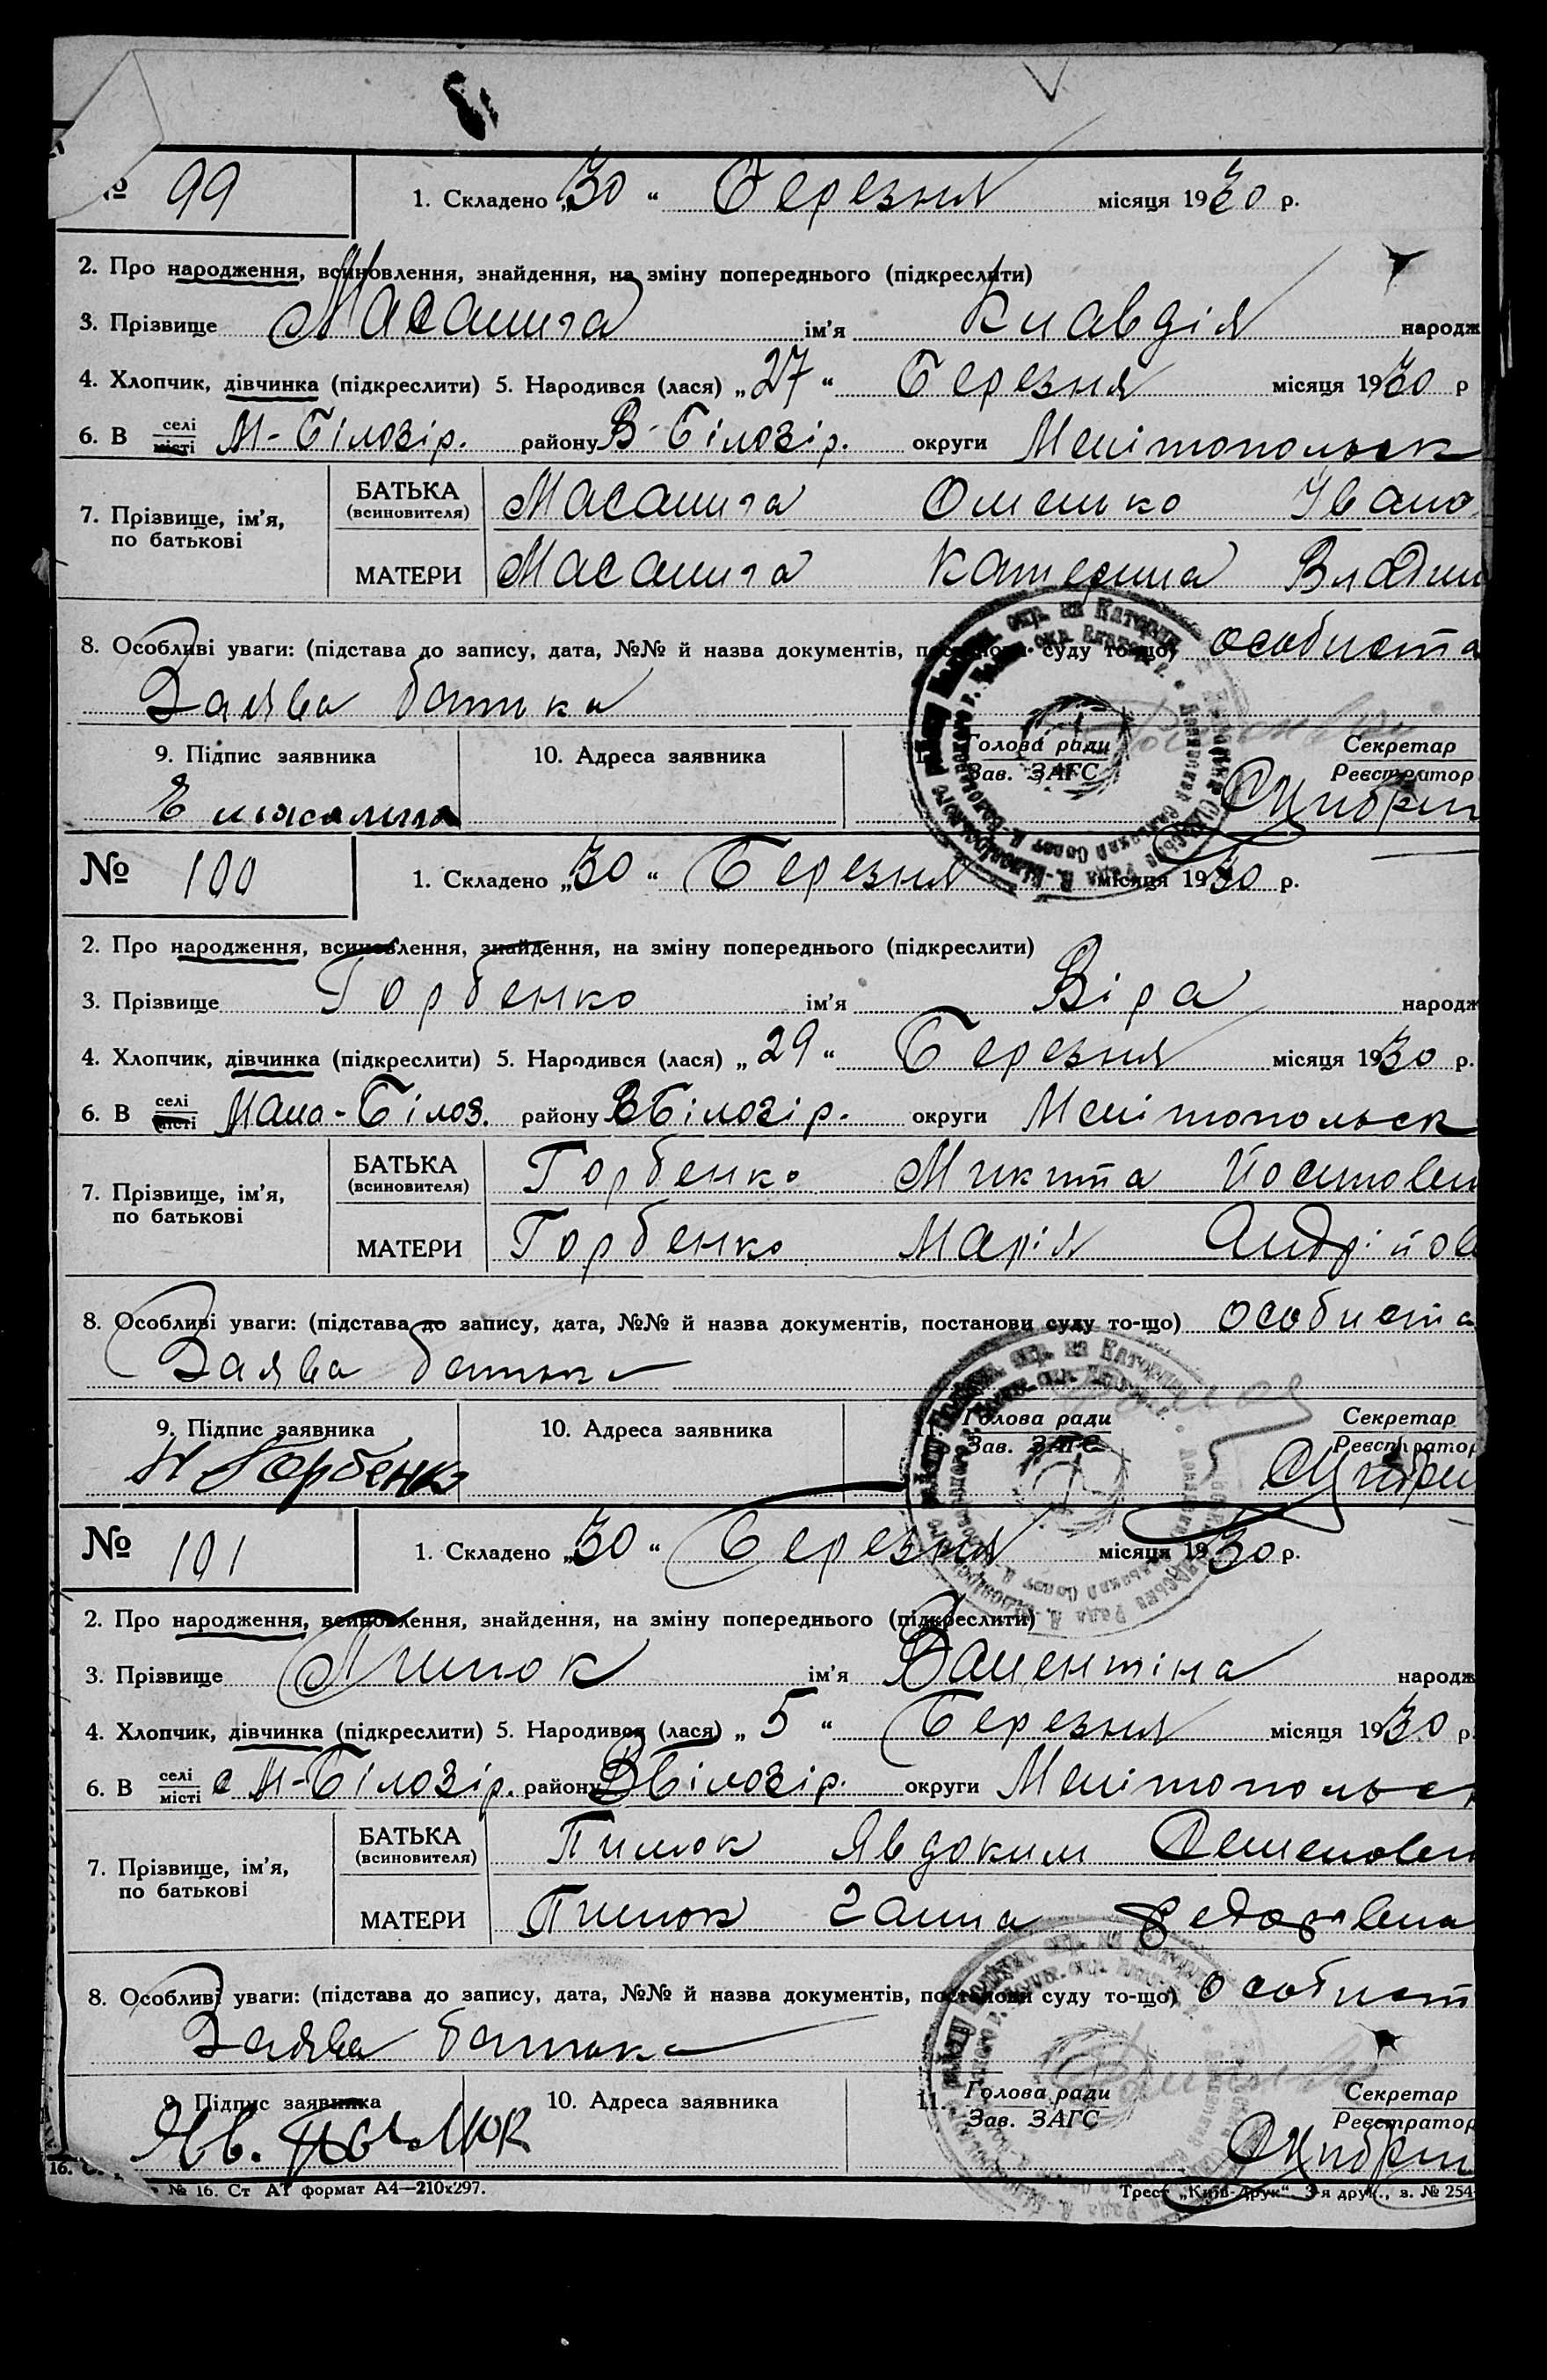 № 99
1. Складено „30“ Березня місяця 1930 р.
2. Про народження, всиновлення, знайдення, на зміну попереднього (підкреслити)
3. Прізвище Масалига ім'я Клавдія народж
4. Хлопчик, дівчинка (підкреслити) 5. Народився (лася) „27“ Березня місяця 1930 р
6. В селі місті М-Білозір. району В-Білозір. округи Мелітопольск
7. Прізвище, ім'я, по батькові
БАТЬКА (всиновителя) Масалига Омелько Івано
МАТЕРИ Масалига Катерина Владим
8. Особливі уваги: (підстава до запису, дата, №№ й назва документів, постанови суду то-що) особиста
Заява батька
9. Підпис заявника 10. Адреса заявника 11. Голова ради Зав. ЗАГС Секретар Реєстратор
№ 100
1. Складено „30“ Березня місяця 1930 р.
2. Про народження, всиновлення, знайдення, на зміну попереднього (підкреслити)
3. Прізвище Горбенко ім'я Віра народж
4. Хлопчик, дівчинка (підкреслити) 5. Народився (лася) „29“ Березня місяця 1930 р.
6. В селі місті Мало-Білоз. району ВБілозір. округи Мелітопольск
7. Прізвище, ім'я, по батькові
БАТЬКА (всиновителя) Горбенко Микита Йосипови
МАТЕРИ Горбенко Марія Андрійов
8. Особливі уваги: (підстава до запису, дата, №№ й назва документів, постанови суду то-що) особиста
Заява батька
9. Підпис заявника 10. Адреса заявника 11. Голова ради Зав. ЗАГС Секретар Реєстратор
Горбенко
№ 101
1. Складено „30“ Березня місяця 1930 р.
2. Про народження, всиновлення, знайдення, на зміну попереднього (підкреслити)
3. Прізвище Пимок ім'я Валентіна народж
4. Хлопчик, дівчинка (підкреслити) 5. Народився (лася) „5“ Березня місяця 1930 р.
6. В селі місті с М-Білозір. району ВБілозір. округи Мелітопольск
7. Прізвище, ім'я, по батькові
БАТЬКА (всиновителя) Пимок Явдоким Семенови
МАТЕРИ Пимок Ганна Федоровна
8. Особливі уваги: (підстава до запису, дата, №№ й назва документів, постанови суду то-що) особист
Заява батька
9. Підпис заявника 10. Адреса заявника 11. Голова ради Зав. ЗАГС Секретар Реєстратор
Яв.
№ 16. Ст А1 формат А4—210х297. Трест „Київ-Друк“ 3-я друк., з. № 254